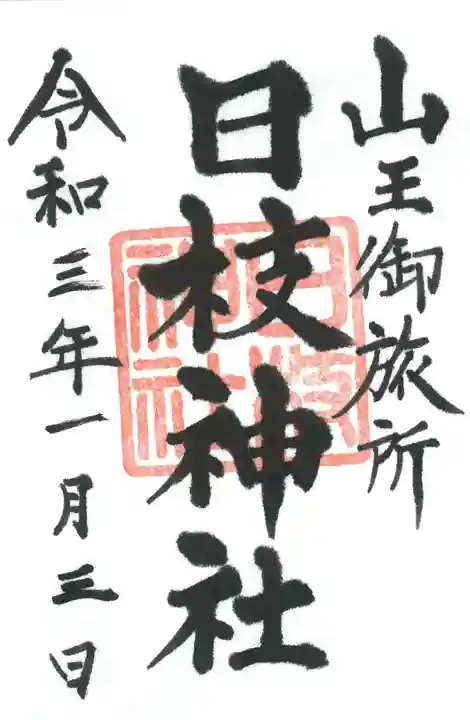 山王御旅所
日枝神社
令和三年一月三日
日枝神社